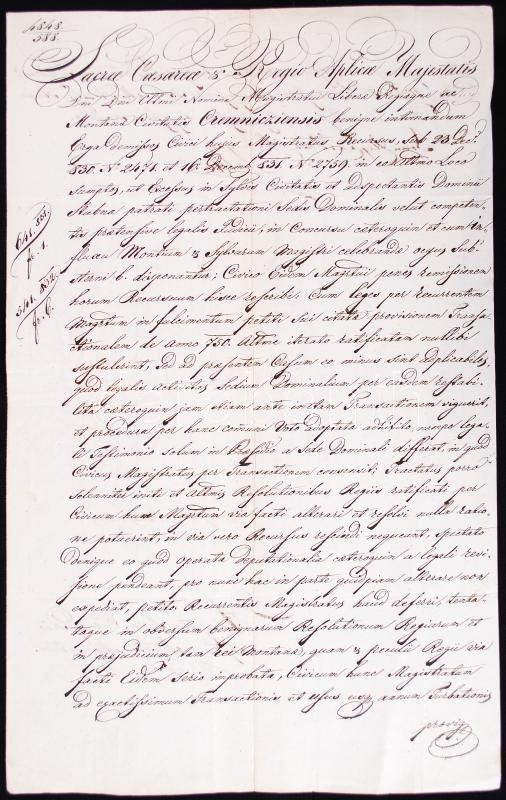 4848
588.
Sacræ Cæsareæ & Regio Aplicæ Majestatis
Dni Dni Altmi Nomine Magistratui Liberæ Regiæque ac
Montanæ Civitatis Cremnicziensis benigne intimandum
Erga demissos Civici hujus Magistratus Recursus, sub 23 Dec.
830. N° 2471. et 16. Decemb. 831. N° 2759. in eo Altmo Loco
sumptos, ut Excessus in Sylvis Civitatis et adspectantis Dominii
Stubna patrati pertractationi Sedis Dominalis velut competen-
tis prætensive legalis Judicii, in Concursu cæteroquin et cum in-
fluxu Montium & Sylvarum Magistri celebrandæ ocyus Sub-
sterni b. disponantur; Civico Eidem Magstui penes remissionem
horum Recursuum hisce rescribi: Cum leges per Recurrentem
Magtum in fulcimentum petiti sui citatæ provisionem Transa-
ctionalem de Anno 750. Altme iterato ratificatam nullibi
sustulerint, sed ad præsentem Casum eo minus sint adplicabiles,
quod legalis activitas Sedium Dominalium per easdem restabi-
lita cæteroquin jam etiam ante initam Transactionem viguerit,
et procedura per hanc comuni Voto adoptata adhibito, nempe lega-
li Testimonio solum in Præsidio a Sede Dominali differat, in quod
Civicus Magistratus per Transactionem consensit; Tractatus porro
solenniter initi et Altmis Resolutionibus Regiis ratificati per
Civicum hunc Magtum via facti alterari et resolvi nulla ratio-
ne potuerint, in via vero Recursus rescindi nequeant, spectato
denique eo quod operata Deputationalia cæteroquin a legali revi-
sione pendeant, pro nunc hac in parte quidpiam alterare non
expediat, petito Recurrentis Magistratus haud deferri, tenta-
taque in obversum benignarum Resolutionum Regiarum et
in præjudicium tam rei Montanæ, quam & peculii Regii via
facti Eidem serio improbata, Civicum hunc Magistratum
ad exactissimum Transactionis et Usus usq annum Turbationis
provig
641. 831.
fe. 1.
341. 832.
fe. 6.